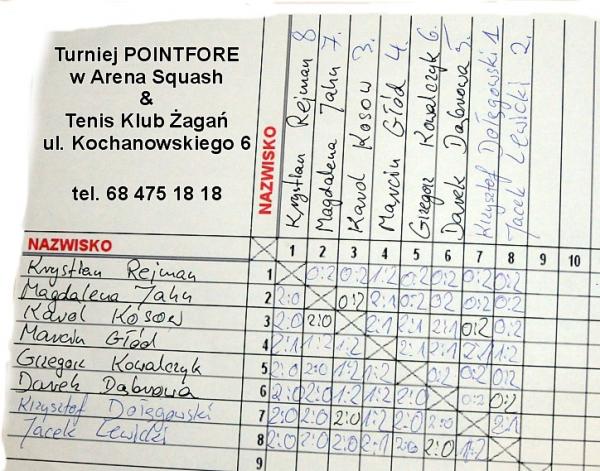 Turniej POINTFORE
w Arena Squash
&
Tenis Klub Żagań
ul. Kochanowskiego 6
tel. 68 475 18 18
NAZWISKO
Krystian Rejman 8
Magdalena Jahn 7.
Karol Kosow 3.
Marcin Głód 4.
Grzegorz Kowalczyk 6.
Darek Dąbrowa 5.
Krzysztof Dołęgowski 1
Jacek Lewicki 2.
NAZWISKO 1 2 3 4 5 6 7 8 9 10
Krystian Rejman 1 0:2 0:2 1:2 0:2 0:2 0:2 0:2
Magdalena Jahn 2 2:0 0:2 2:1 0:2 0:2 0:2 0:2
Karol Kosow 3 2:0 2:0 2:1 2:1 2:1 0:2 0:2
Marcin Głód 4 2:1 1:2 1:2 2:1 2:1 2:1 1:2
Grzegorz Kowalczyk 5 2:0 2:0 1:2 1:2 0:2 0:2 0:2
Darek Dąbrowa 6 2:0 2:0 1:2 1:2 2:0 0:2 0:2
Krzysztof Dołęgowski 7 2:0 2:0 2:0 1:2 2:0 2:0 2:1
Jacek Lewicki 8 2:0 2:0 2:0 2:1 2:0 2:0 1:2
9